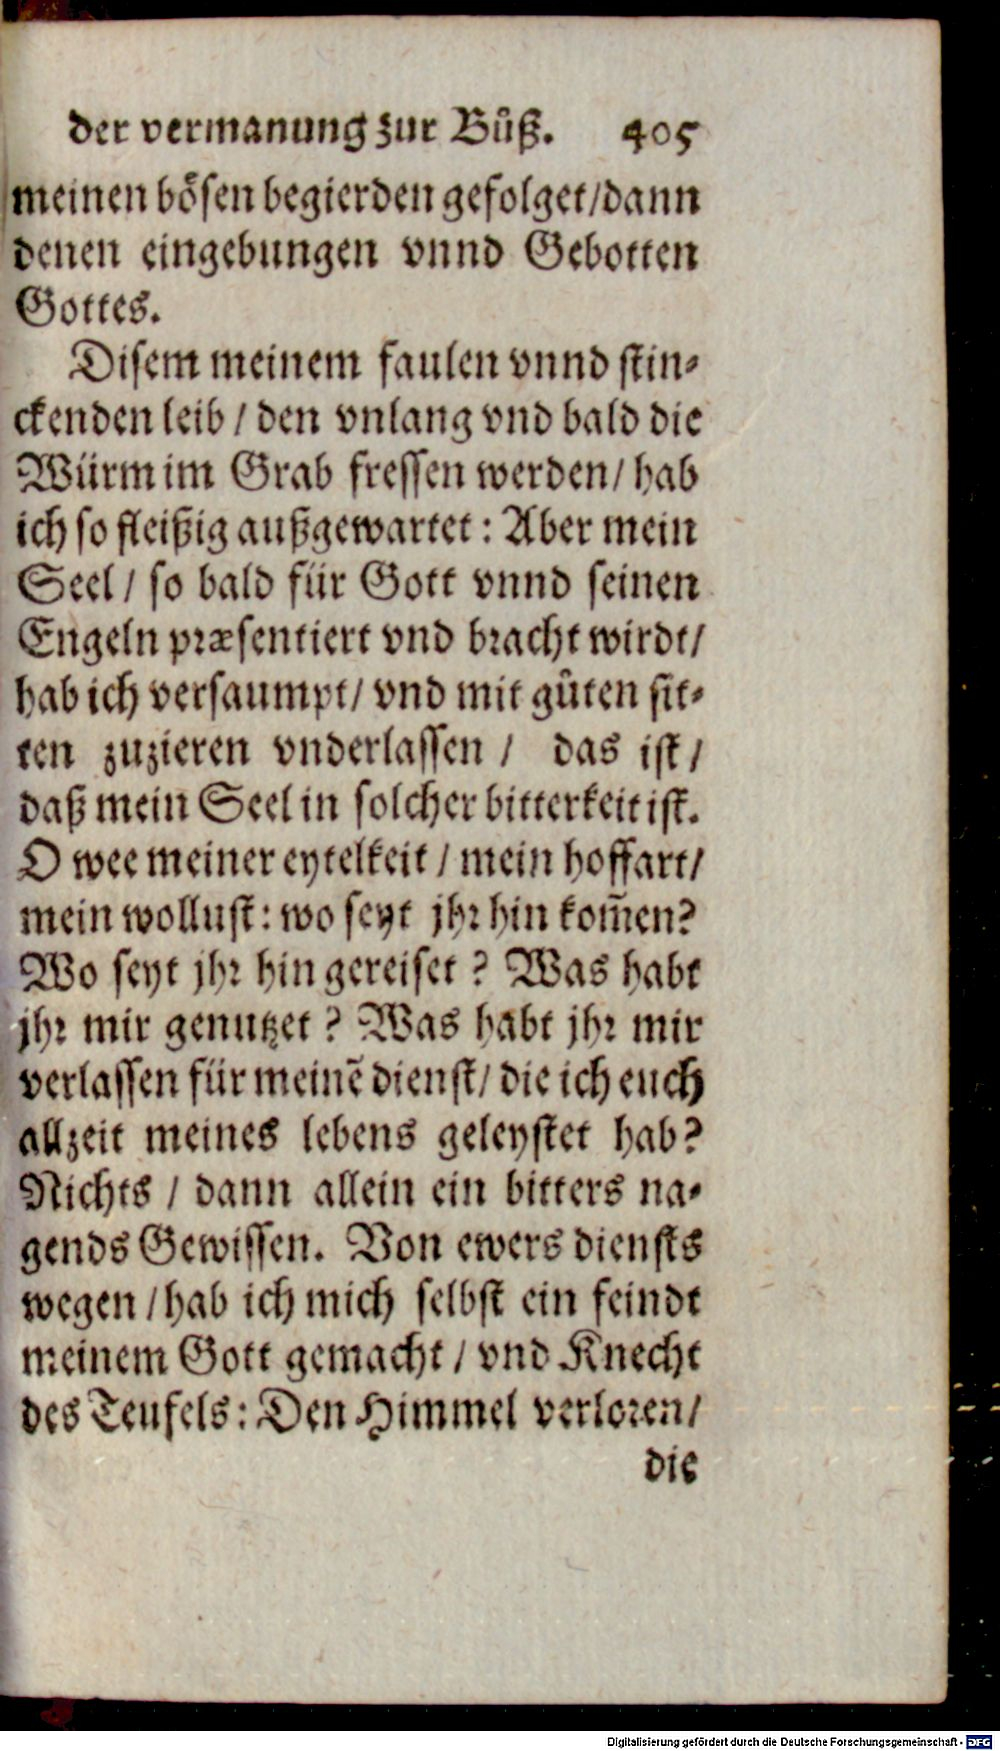 der vermanung zur Bůß. 405
meinen boͤsen begierden gefolget/dann
denen eingebungen vnnd Gebotten
Gottes.
Disem meinem faulen vnnd stin-
ckenden leib / den vnlang vnd bald die
Würm im Grab fressen werden/ hab
ich so fleißig außgewartet: Aber mein
Seel / so bald für Gott vnnd seinen
Engeln præsentiert vnd bracht wirdt/
hab ich versaumpt/ vnd mit gůten sit-
ten zuzieren vnderlassen / das ist /
daß mein Seel in solcher bitterkeit ist.
O wee meiner eytelkeit / mein hoffart/
mein wollust: wo seyt jhr hin kom̃en?
Wo seyt jhr hin gereiset ? Was habt
jhr mir genutzet ? Was habt jhr mir
verlassen für meinẽ dienst/ die ich euch
allzeit meines lebens geleystet hab?
Nichts / dann allein ein bitters na-
gends Gewissen. Von ewers diensts
wegen / hab ich mich selbst ein feindt
meinem Gott gemacht / vnd Knecht
des Teufels: Den Himmel verloren/
die
Digitalisierung gefördert durch die Deutsche Forschungsgemeinschaft - DFG